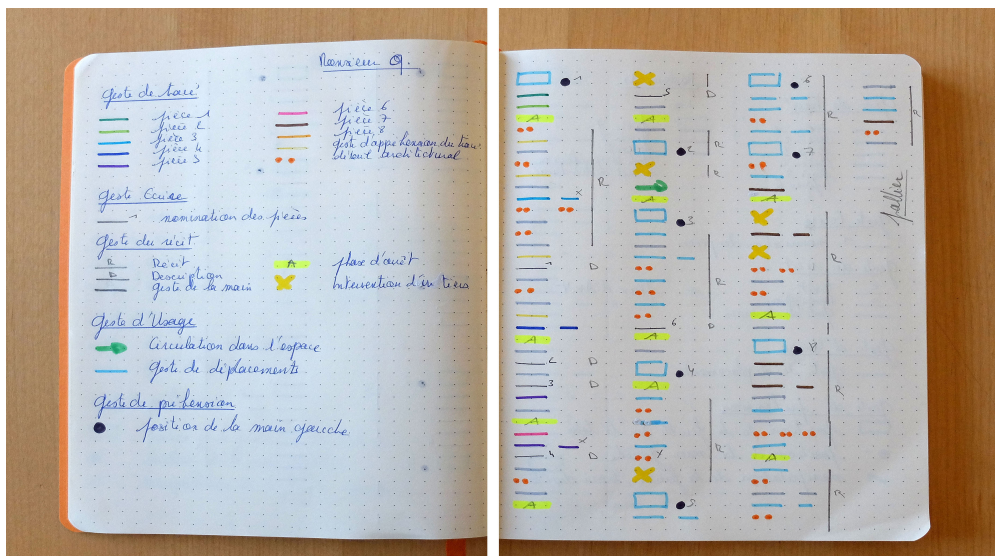 Monsieur Q.
geste de tracé
pièce 1
pièce 2
pièce 3
pièce 4
pièce 5
pièce 6
pièce 7
pièce 8
geste d'appréhension du
détail architectural
geste Ecrire
1 nomination des pièces
geste du récit
R Récit
D Description
geste de la main
A phase d'arrêt
Intervention d'un tiers
geste d'Usage
Circulation dans l'espace
geste de déplacements
geste de préhension
position de la main gauche
1
A
x
R
1
D
A
2 D
3 D
A
x
4 D
A
5
D
A
2
R
R
A
3
R
6
D
A
4
A
R
5
6
R
7
A
R
A
8
R
A
R
R
pallier